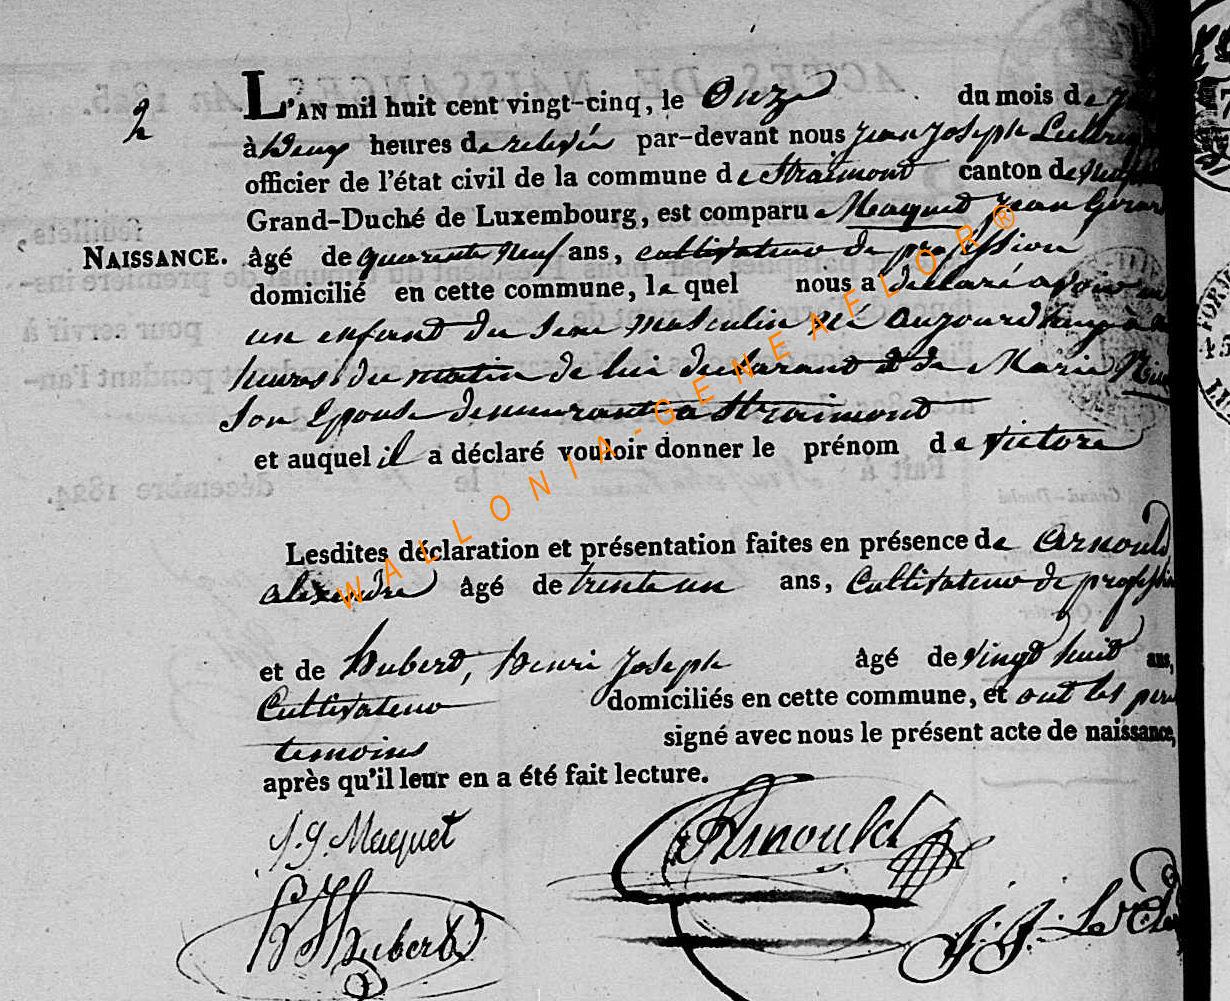 2
L'AN mil huit cent vingt-cinq, le Onze du mois de
à Deux heures de relevée par-devant nous Jean Joseph
officier de l'état civil de la commune de Straimont canton de
Grand-Duché de Luxembourg, est comparu Maquet Jean
NAISSANCE. âgé de quarante neuf ans, cultivateur de profession
domicilié en cette commune, le quel nous a déclaré avoir
un enfant du sexe masculin né aujourd'huy à
heures du matin de lui declarant et de Marie
son Epouse demeurant a Straimont
et auquel il a déclaré vouloir donner le prénom de Victore
Lesdites déclaration et présentation faites en présence de Arnould
alixandre âgé de trente un ans, Cultivateur de profession
et de hubert, henri Joseph âgé de vingt huit ans,
Cultivateur domiciliés en cette commune, et ont les
temoins signé avec nous le présent acte de naissance,
après qu'il leur en a été fait lecture.
J. G. Maquet
Arnould
H J Hubert
J. J.
WALLONIA-GENEAFLOR®